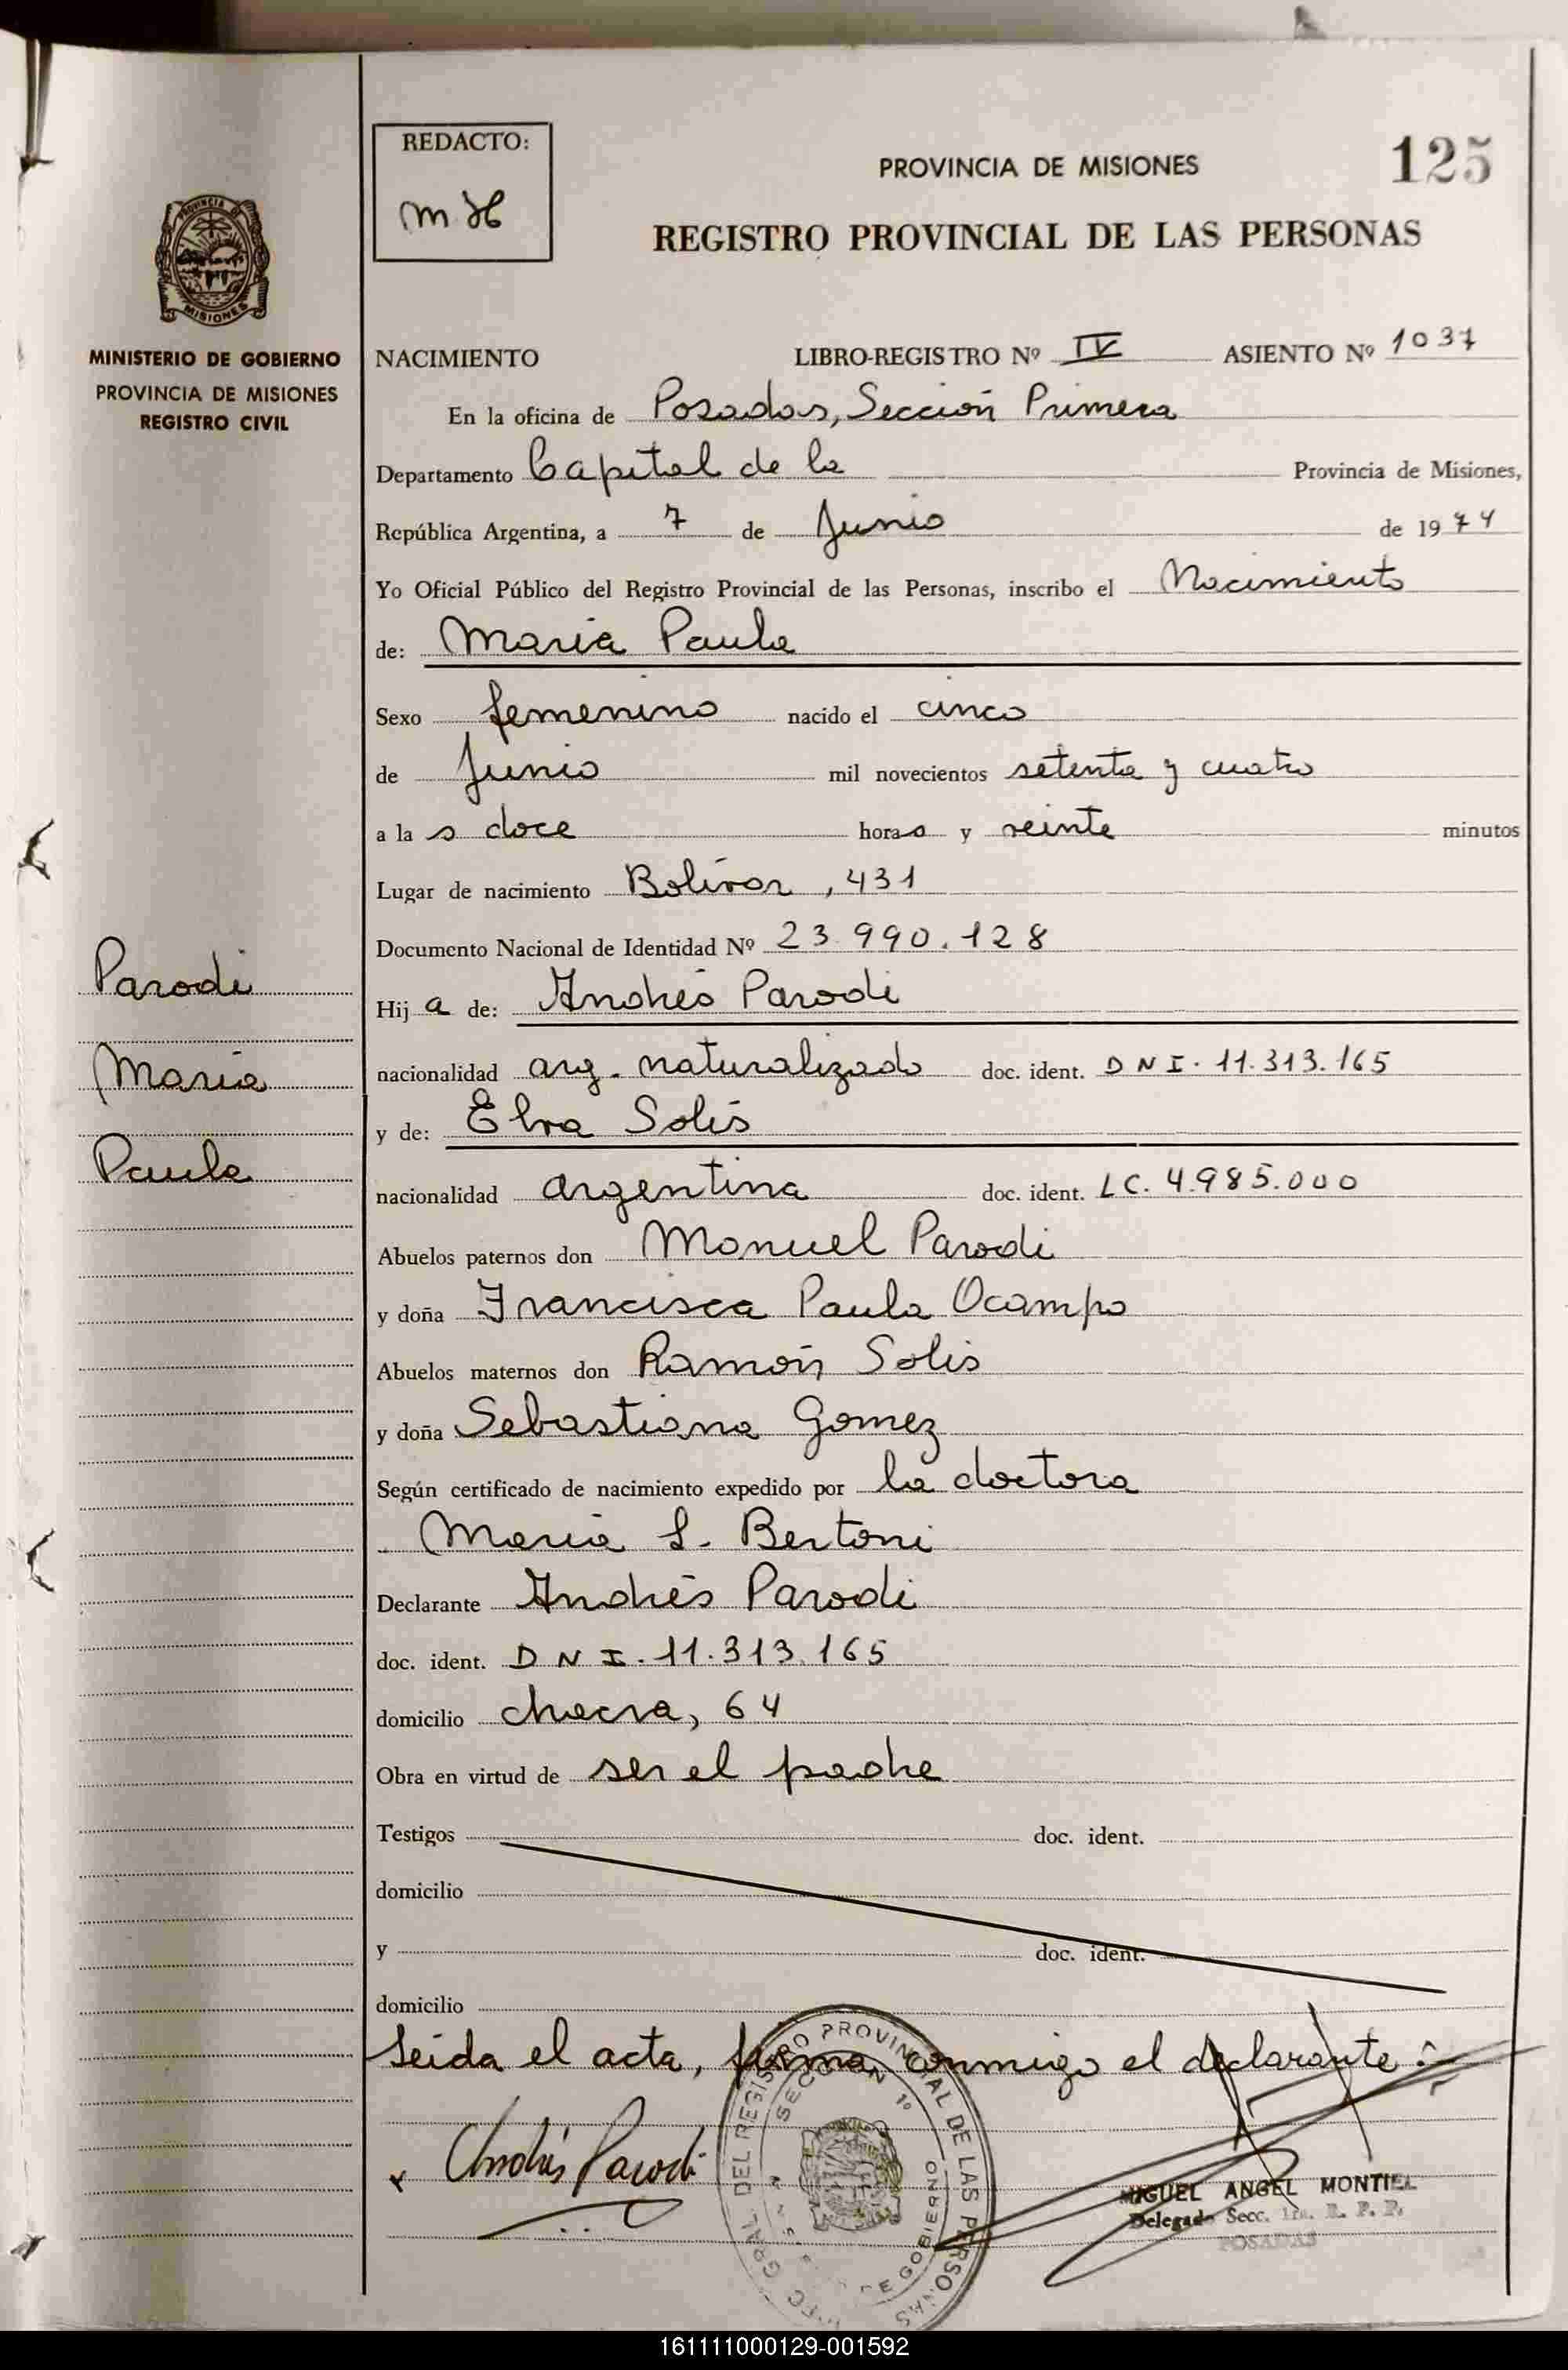 REDACTO:
PROVINCIA DE MISIONES
125
REGISTRO PROVINCIAL DE LAS PERSONAS
MISIONES
MINISTERIO DE GOBIERNO
PROVINCIA DE MISIONES
REGISTRO CIVIL
NACIMIENTO LIBRO-REGISTRO Nº IV ASIENTO Nº 1037
En la oficina de Posadas, Sección Primera
Departamento Capital de la Provincia de Misiones,
República Argentina, a 7 de Junio de 1974
Yo Oficial Público del Registro Provincial de las Personas, inscribo el Nacimiento
de: María Paula
Sexo femenino nacido el cinco
de Junio mil novecientos setenta y cuatro
a las doce horas y veinte minutos
Lugar de nacimiento Bolívar, 431
Documento Nacional de Identidad Nº 23.990.128
Hija de: Andrés Parodi
nacionalidad arg. naturalizado doc. ident. DNI. 11.313.165
y de: Elva Solís
nacionalidad argentina doc. ident. LC. 4.985.000
Abuelos paternos don Manuel Parodi
y doña Francisca Paula Ocampo
Abuelos maternos don Ramón Solis
y doña Sebastiana Gomez
Según certificado de nacimiento expedido por la doctora
María S. Bertoni
Declarante Andrés Parodi
doc. ident. DNI. 11.313.165
domicilio chacra, 64
Obra en virtud de ser el padre
Testigos doc. ident.
domicilio
y doc. ident.
domicilio
Leída el acta, firma conmigo el declarante:-
Parodi
María
Paula
Andrés Parodi
DEL REGISTRO PROVINCIAL DE LAS PERSONAS
SECCION 1º
GOBIERNO
MIGUEL ANGEL MONTIEL
Delegado Secc. 1ra. R. P. P.
POSADAS
161111000129-001592